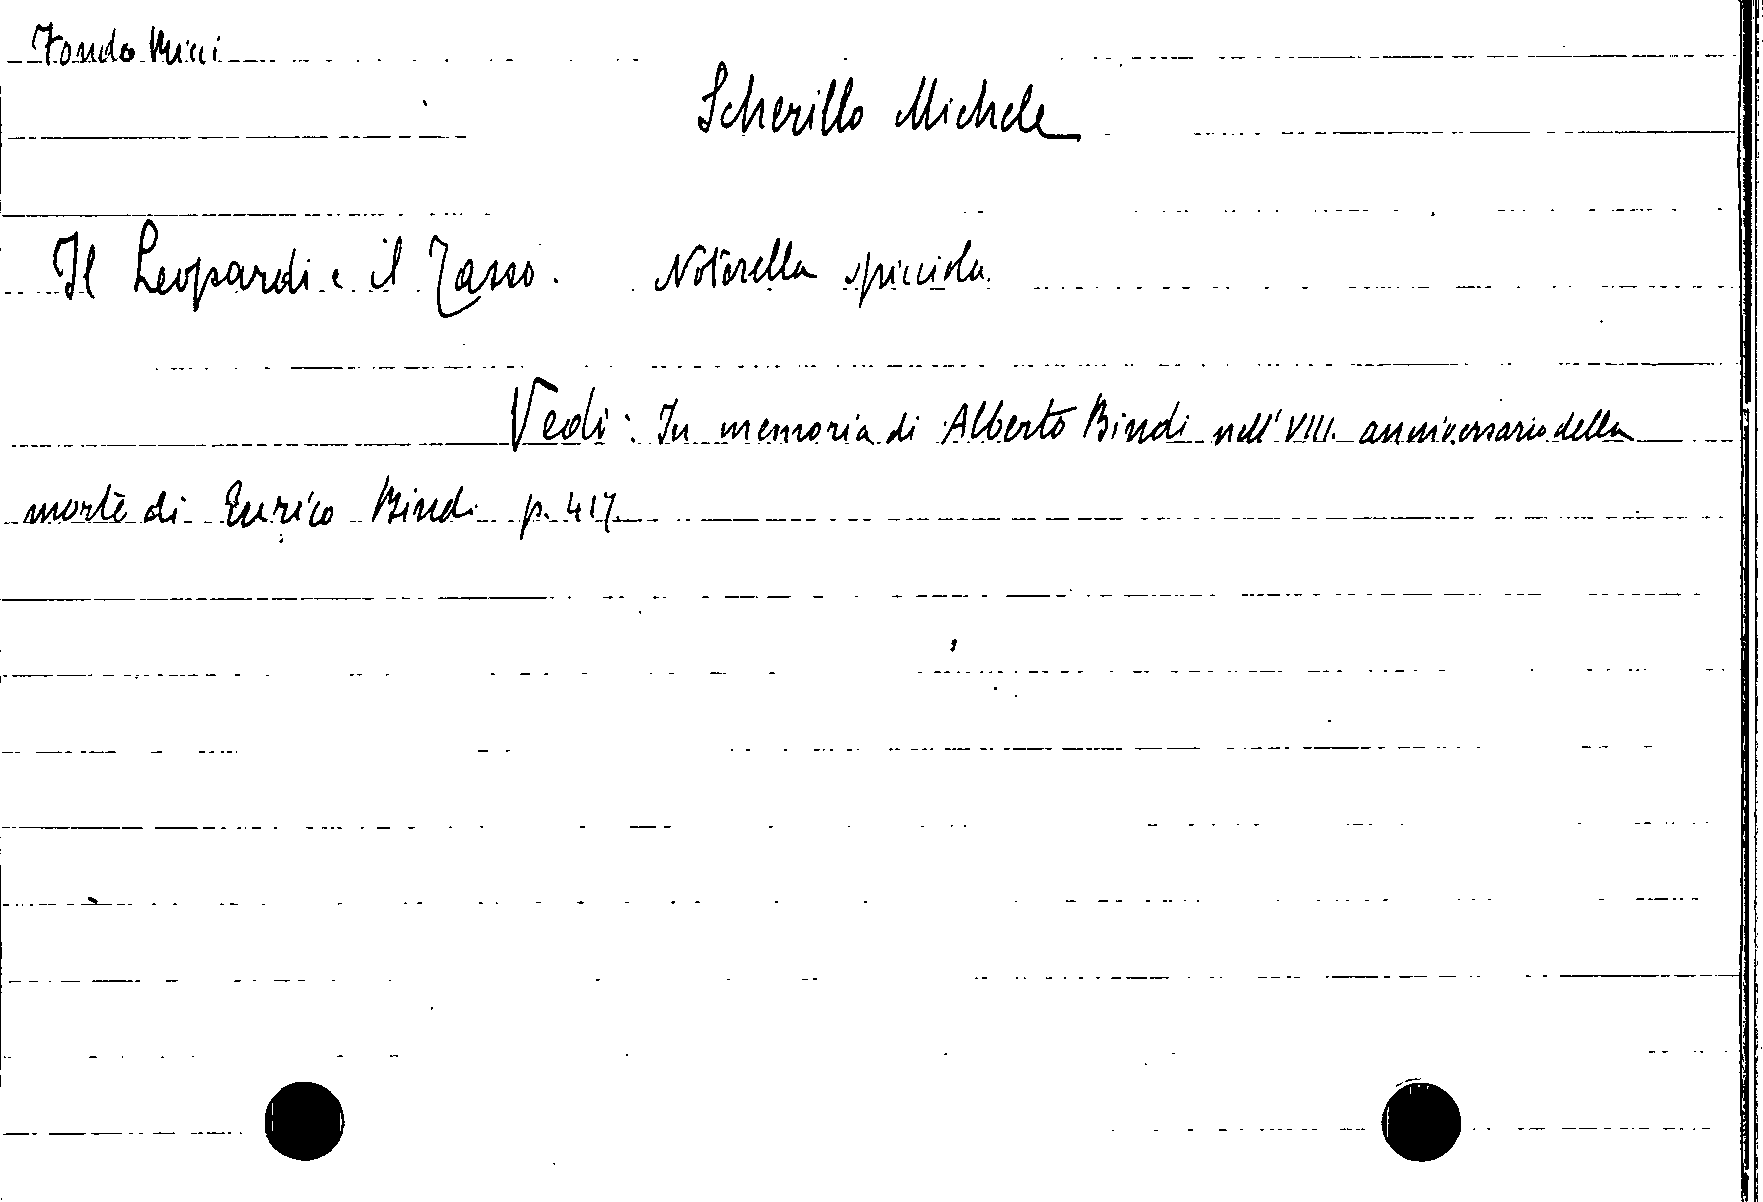 Fondo Ricci
Scherillo Michele
Il Leopardi e il Tasso. Noterella spicciola.
Vedi: In memoria di Alberto Bindi nell'VIII. anniversario della
morte di Enrico Bindi p. 417.